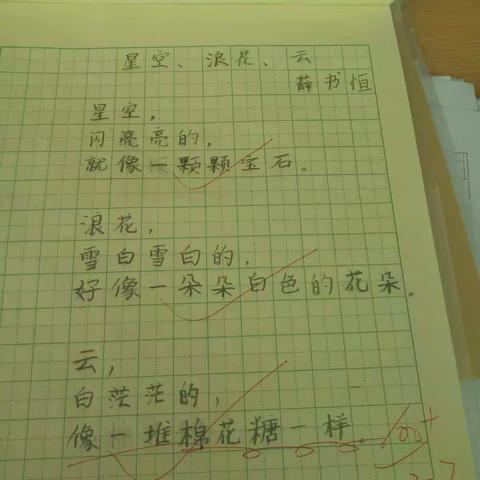 星空、浪花、云
薛书恒
星空，
闪亮亮的，
就像一颗颗宝石。
浪花，
雪白雪白的，
好像一朵朵白色的花朵。
云，
白茫茫的，
像一堆棉花糖一样。
100+